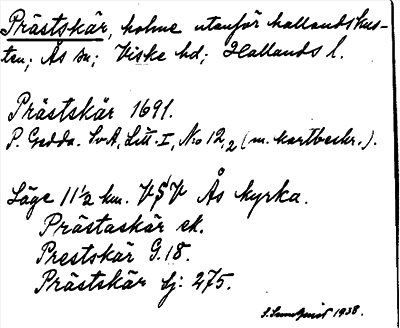 Prästskär, holme utanför hallandskus-
ten; Ås sn; Viske hd; Hallands l.
Prästskär 1691.
P. Gedda. SvA, Litt. I, No 12, 2 (m. kartbeskr.).
Läge 11½ km. VSV Ås kyrka.
Prästaskär ek.
Prestskär G.18.
Prästskär Sj: 275.
S. Sundqvist 1938.